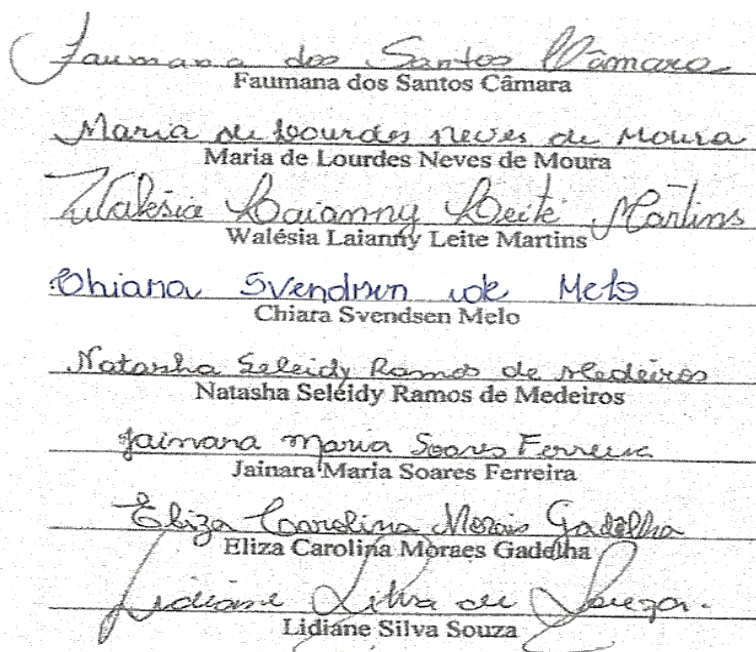 Faumana dos Santos Câmara
Faumana dos Santos Câmara
Maria de Lourdes Neves de Moura
Maria de Lourdes Neves de Moura
Walésia Laianny Leite Martins
Walésia Laianny Leite Martins
Chiara Svendsen de Melo
Chiara Svendsen Melo
Natasha Seleidy Ramos de Medeiros
Natasha Seléidy Ramos de Medeiros
Jainara Maria Soares Ferreira
Jainara Maria Soares Ferreira
Eliza Carolina Morais Gadelha
Eliza Carolina Moraes Gadelha
Lidiane Silva de Souza.
Lidiane Silva Souza